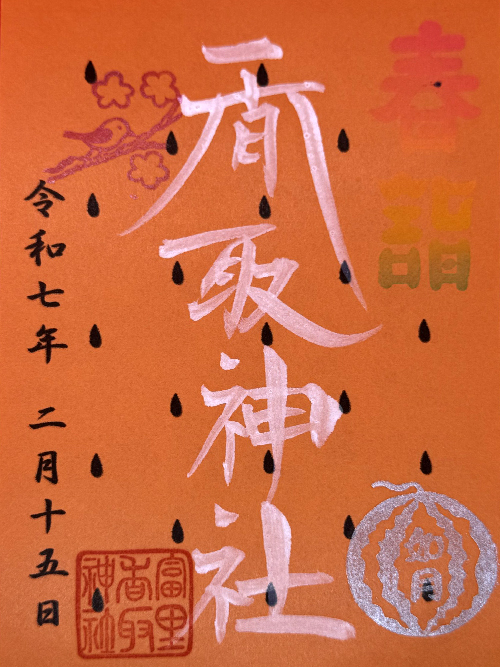 春詣
香取神社
如月
令和七年 二月十五日
富里
香取
神社